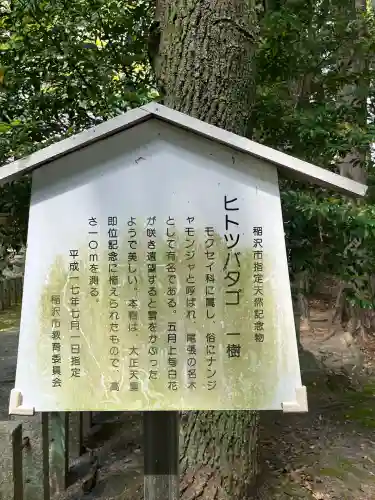 稲沢市指定天然記念物
ヒトツバタゴ　一樹
モクセイ科に属し　俗にナンジ
ャモンジャと呼ばれ　尾張の名木
として有名である。五月上旬白花
が咲き遠望すると雪をかぶった
ようで美しい。本樹は、大正天皇
即位記念に植えられたもので、高
さ１０ｍを測る。
平成一七年七月一日指定
稲沢市教育委員会